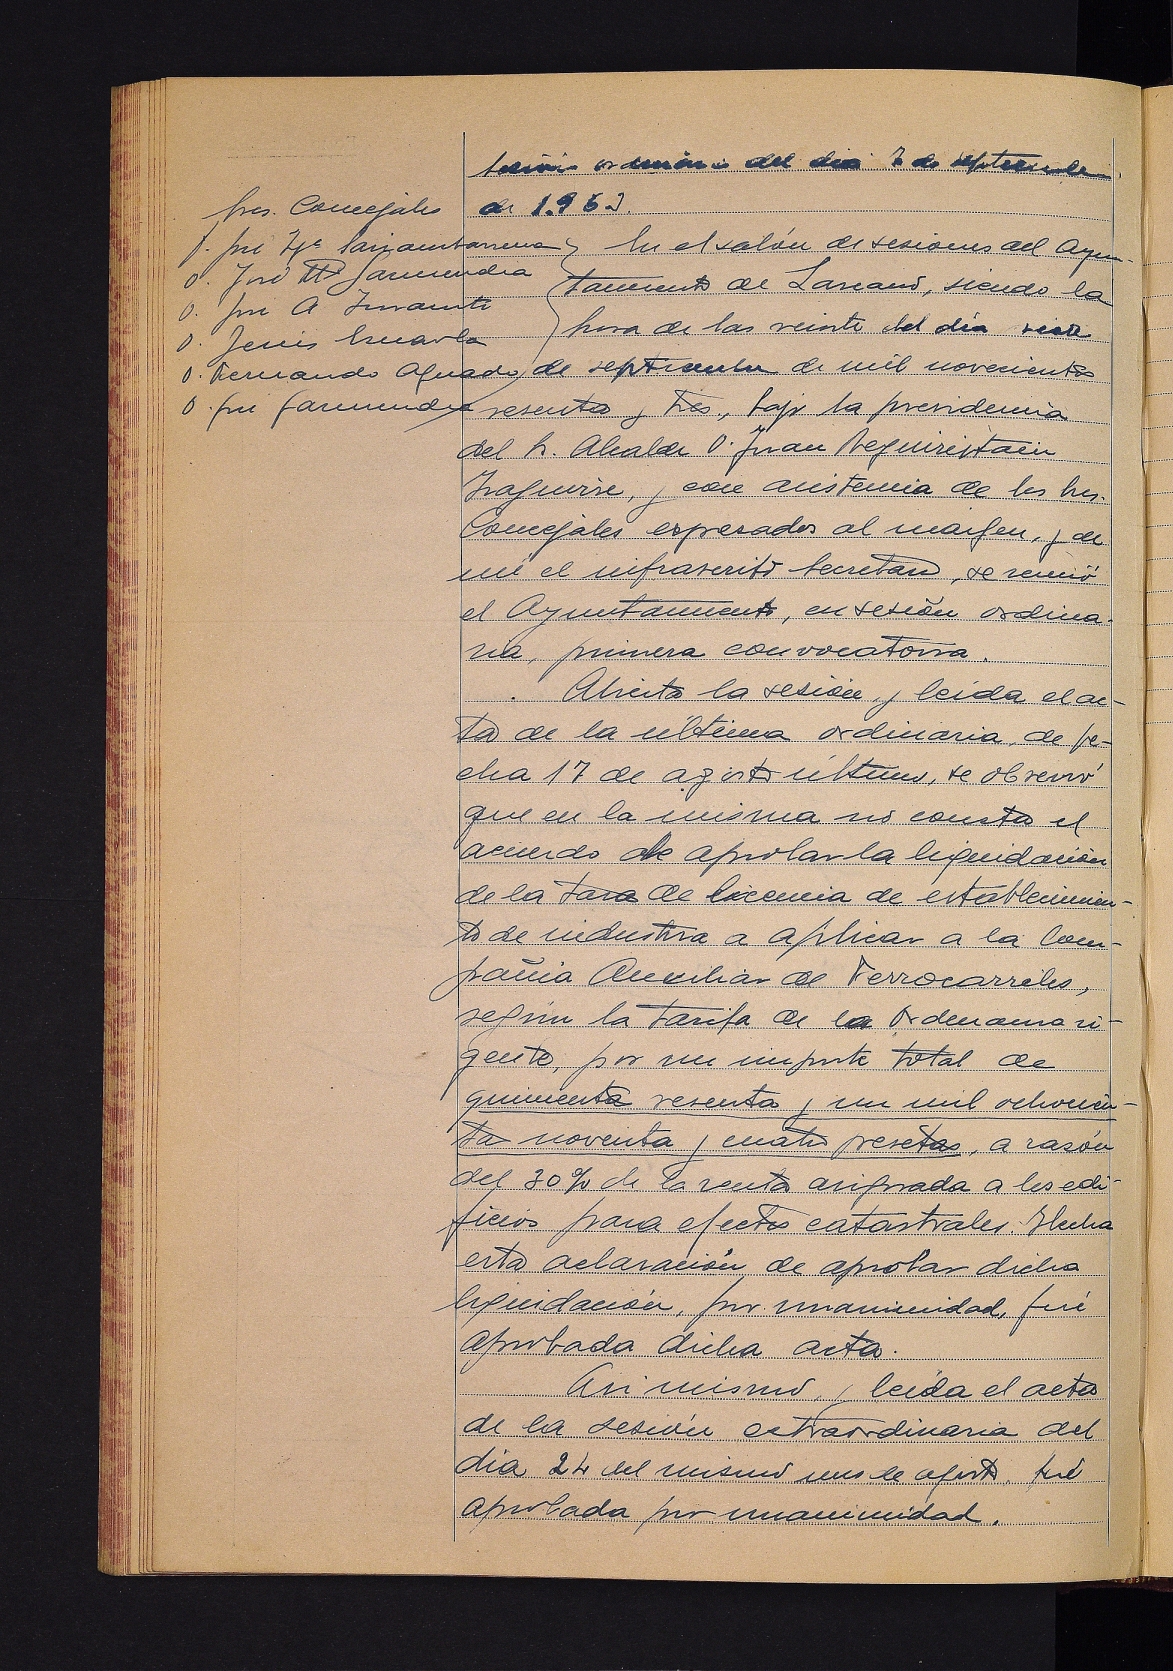 Sesión ordinaria del dia 7 de septiembre
de 1.963.
Sres. Concejales
D. José Mª
D. José Mª Garmendia
D. José A.
D. Jesús
D. Fernando Aguado
D. José Garmendia
En el salón de sesiones del Ayun-
tamiento de Lazcano, siendo la
hora de las veinte del dia siete
de septiembre de mil novecientos
sesenta y tres, bajo la presidencia
del Sr. Alcalde D. Juan Beguiristain
Izaguirre, y con asistencia de los Sres.
Concejales expresados al margen, y de
mi el infrascrito Secretario, se reunió
el Ayuntamiento, en sesión ordina-
ria, primera convocatoria.
Abierta la sesión, y leida el ac-
ta de la última ordinaria, de fe-
cha 17 de agosto último, se observó
que en la misma no consta el
acuerdo de aprobar la liquidación
de la tasa de licencia de establecimien-
to de industria a aplicar a la Com-
pañia Auxiliar de Ferrocarriles,
según la tarifa de la Ordenanza vi-
gente, por un importe total de
quinienta sesenta y un mil ochocien-
tas noventa y cuatro pesetas, a razón
del 30% de la renta asignada a los edi-
ficios para efectos catastrales. Hecha
esta aclaración de aprobar dicha
liquidación, por unanimidad, fué
aprobada dicha acta.
Asi mismo, y leida el acta
de la sesión extraordinaria del
dia 24 del mismo mes de agosto, fué
aprobada por unanimidad.